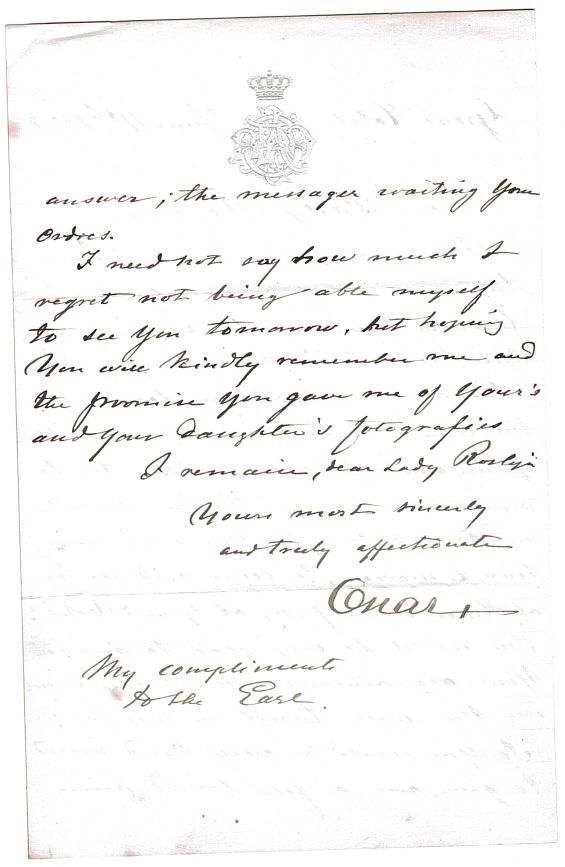 answer; the messager waiting Your
ordres.
I need not say how much I
regret not being able myself
to see You tomorrow, but hoping
You will kindly remember me and
the promise You gave me of Your's
and Your Daughter's fotografies
I remain, dear Lady Roslyn
Yours most sincerly
and truly affectionate
Oscar.
My compliments
to the Earl.